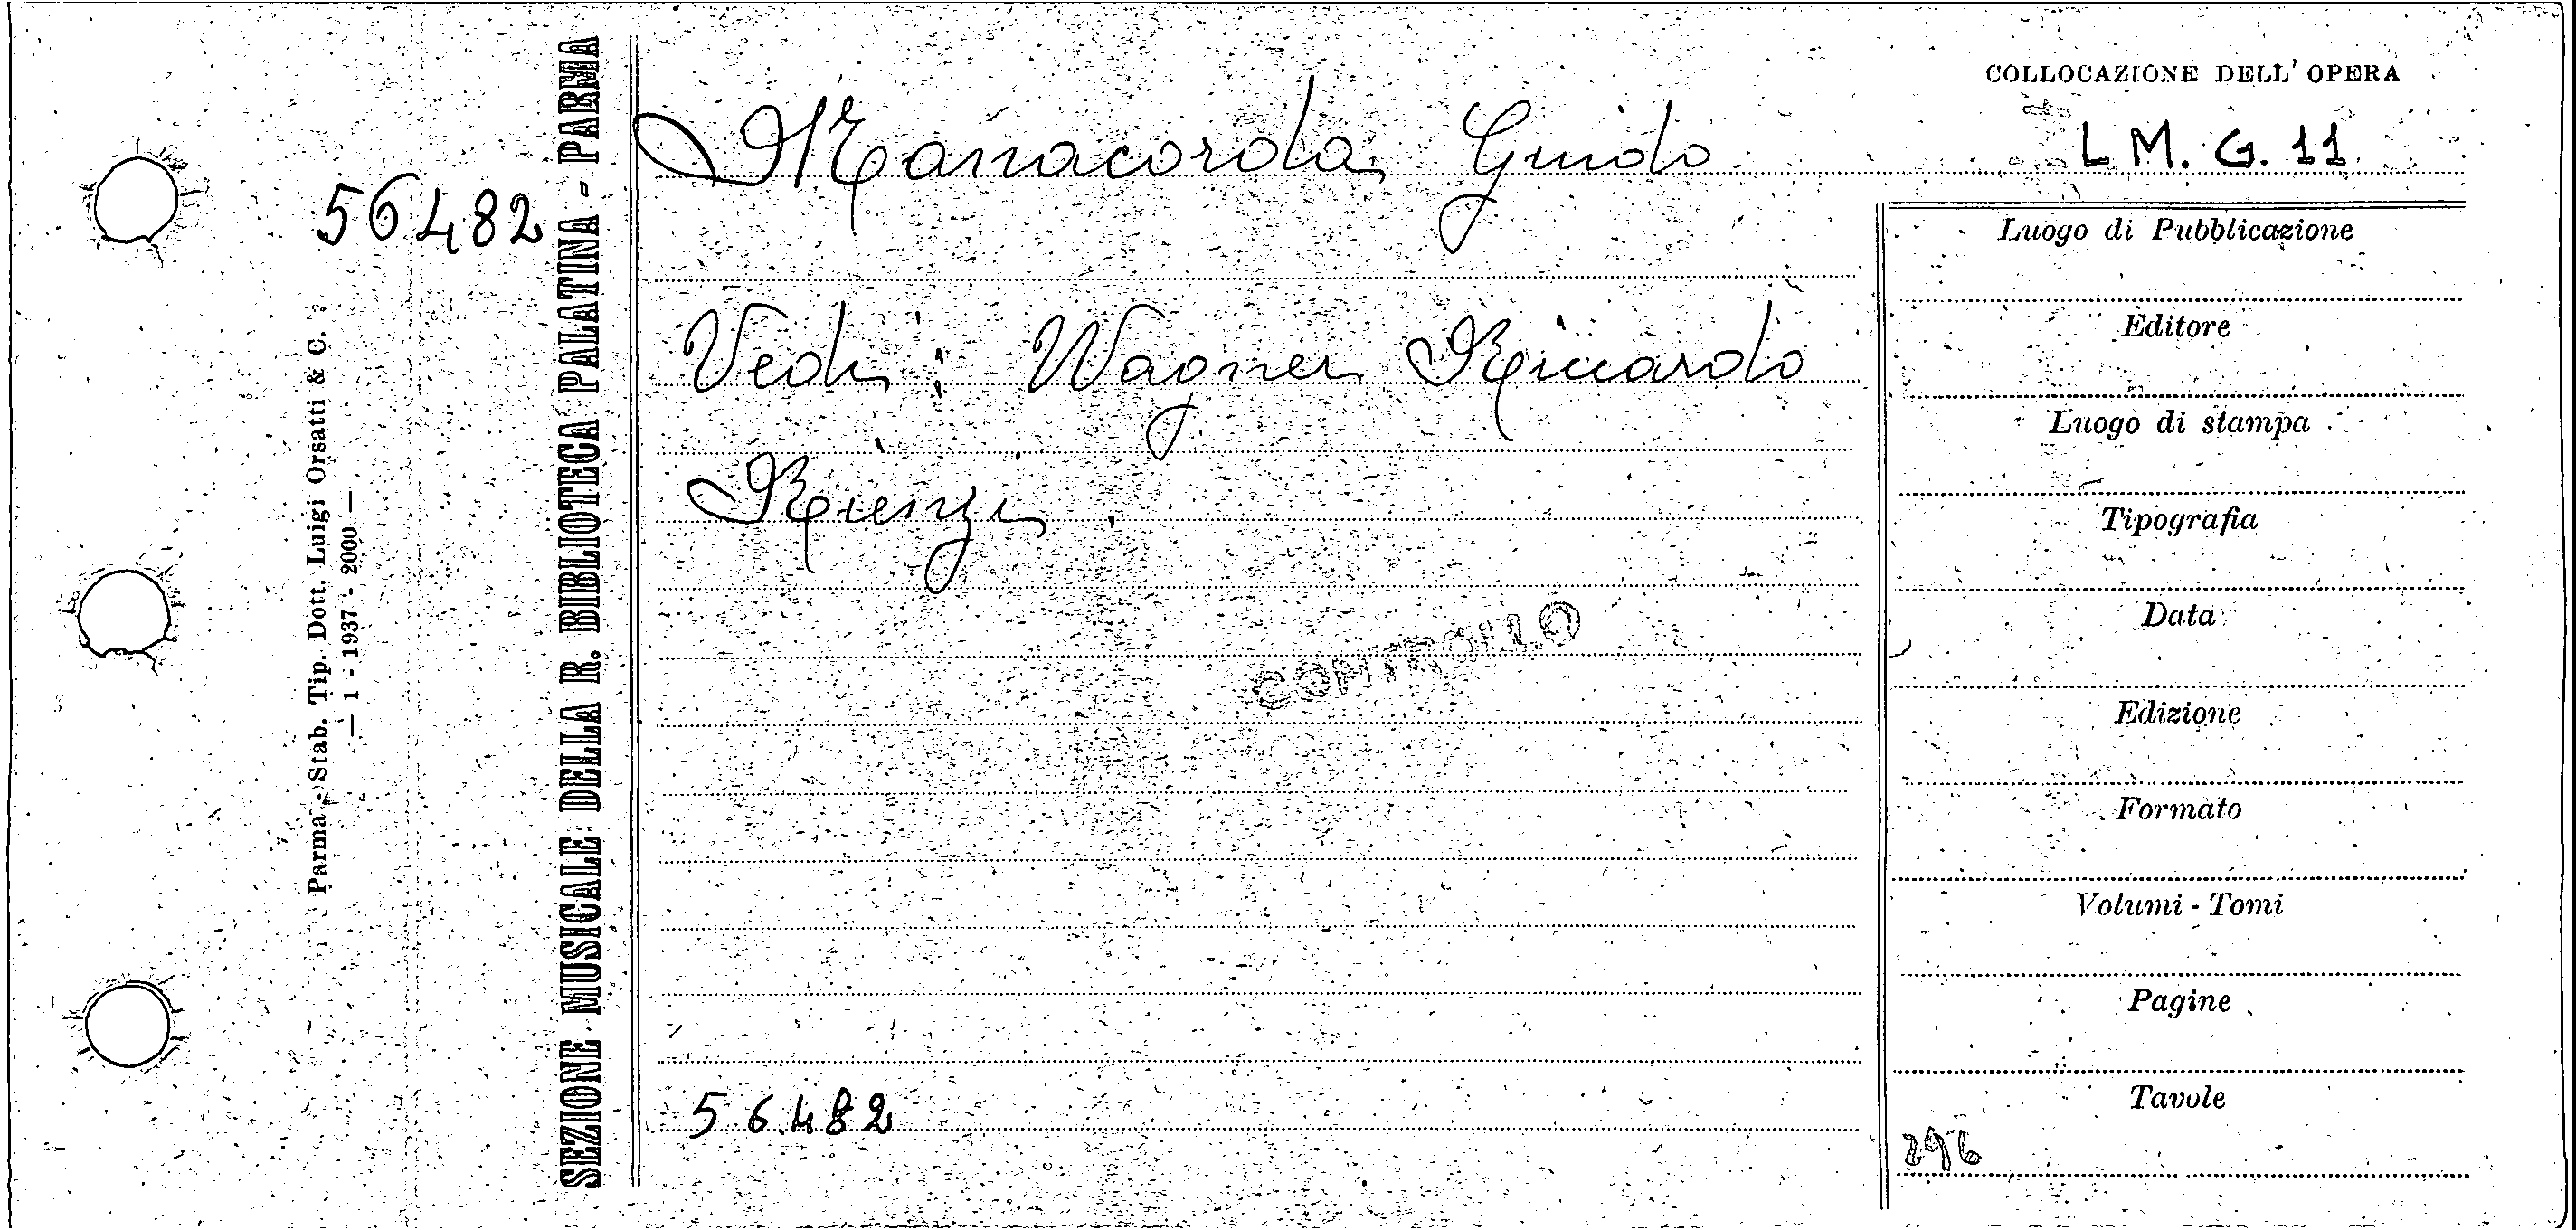 56482
Parma - Stab. Tip. Dott. Luigi Orsatti & C.
— 1 - 1937 - 2000 —
SEZIONE MUSICALE DELLA R. BIBLIOTECA PALATINA - PARMA
Manacorda Guido
Vedi: Wagner Riccardo
Rienzi.
CONTROLLO
56.482
COLLOCAZIONE DELL' OPERA
L M. G. 11
Luogo di Pubblicazione
Editore
Luogo di stampa
Tipografia
Data
Edizione
Formato
Volumi - Tomi
Pagine
Tavole
296